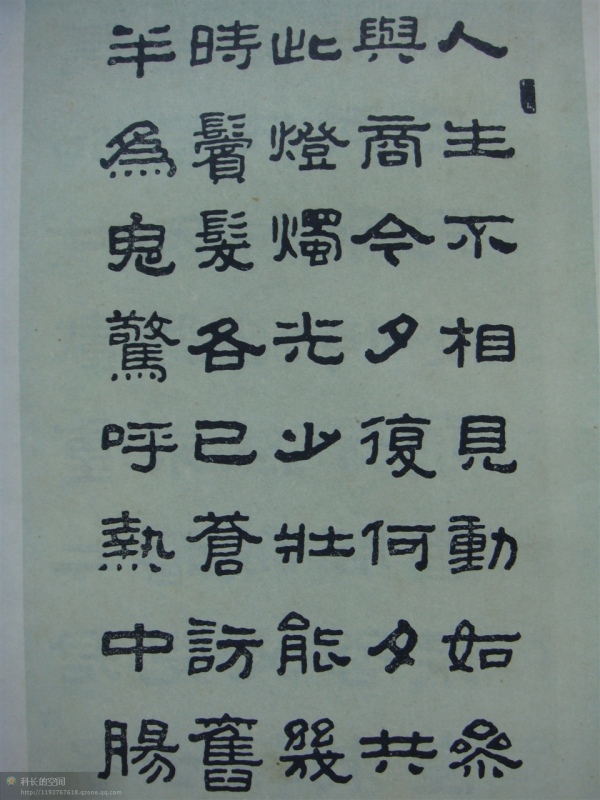 人生不相見動如參
與商今夕復何夕共
此燈燭光少壯能幾
時鬢髮各已蒼訪舊
半為鬼驚呼熱中腸
科长的空间
http://1193767618.qzone.qq.com